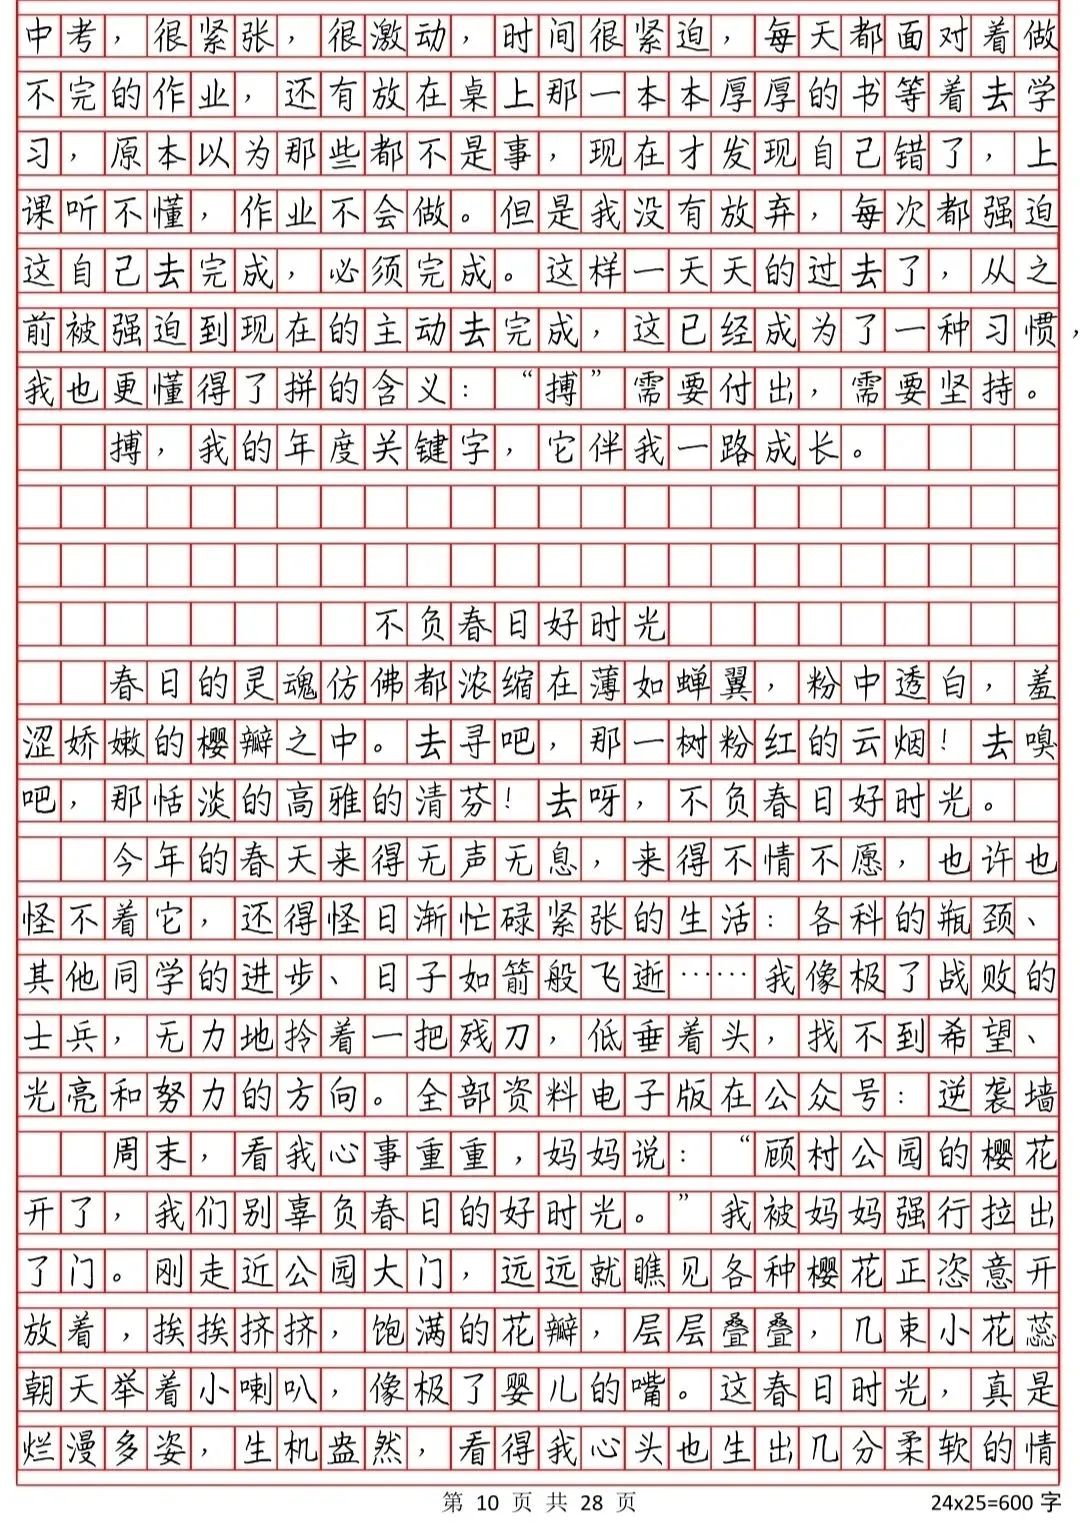 中考，很紧张，很激动，时间很紧迫，每天都面对着做
不完的作业，还有放在桌上那一本本厚厚的书等着去学
习，原本以为那些都不是事，现在才发现自己错了，上
课听不懂，作业不会做。但是我没有放弃，每次都强迫
这自己去完成，必须完成。这样一天天的过去了，从之
前被强迫到现在的主动去完成，这已经成为了一种习惯，
我也更懂得了拼的含义：“搏”需要付出，需要坚持。
搏，我的年度关键字，它伴我一路成长。
不负春日好时光
春日的灵魂仿佛都浓缩在薄如蝉翼，粉中透白，羞
涩娇嫩的樱瓣之中。去寻吧，那一树粉红的云烟！去嗅
吧，那恬淡的高雅的清芬！去呀，不负春日好时光。
今年的春天来得无声无息，来得不情不愿，也许也
怪不着它，还得怪日渐忙碌紧张的生活：各科的瓶颈、
其他同学的进步、日子如箭般飞逝……我像极了战败的
士兵，无力地拎着一把残刀，低垂着头，找不到希望、
光亮和努力的方向。全部资料电子版在公众号：逆袭墙
周末，看我心事重重，妈妈说：“顾村公园的樱花
开了，我们别辜负春日的好时光。”我被妈妈强行拉出
了门。刚走近公园大门，远远就瞧见各种樱花正恣意开
放着，挨挨挤挤，饱满的花瓣，层层叠叠，几束小花蕊
朝天举着小喇叭，像极了婴儿的嘴。这春日时光，真是
烂漫多姿，生机盎然，看得我心头也生出几分柔软的情
第 10 页 共 28 页
24x25=600 字